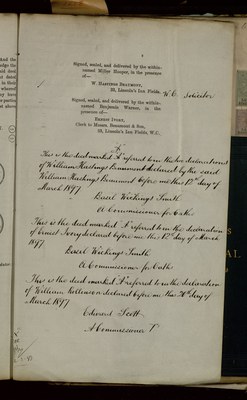 Signed, sealed, and delivered by the within-
named Miller Hooper, in the presence
of—
W. Hastings Beaumont,
23, Lincoln's Inn Fields, W.C. Solicitor
Signed, sealed, and delivered by the within-
named Benjamin Warson, in the
presence of—
Ernest Ivory,
Clerk to Messrs. Beaumont & Son,
23, Lincoln's Inn Fields, W.C.
A
This is the deed marked A referred to in the declaration
of William Hastings Beaumont declared by the said
William Hastings Beaumont before me this 12th day of
March 1897
Basil Wickings Smith
A Commissioner for Oaths
This is the deed marked A referred to in the declaration
of Ernest Ivory declared before me this 12th day of March
1897
Basil Wickings Smith
A Commissioner for Oaths
This is the deed marked A referred to in the declaration
of William declared before me this day of
March 1897
Edward Scott
A Commissioner